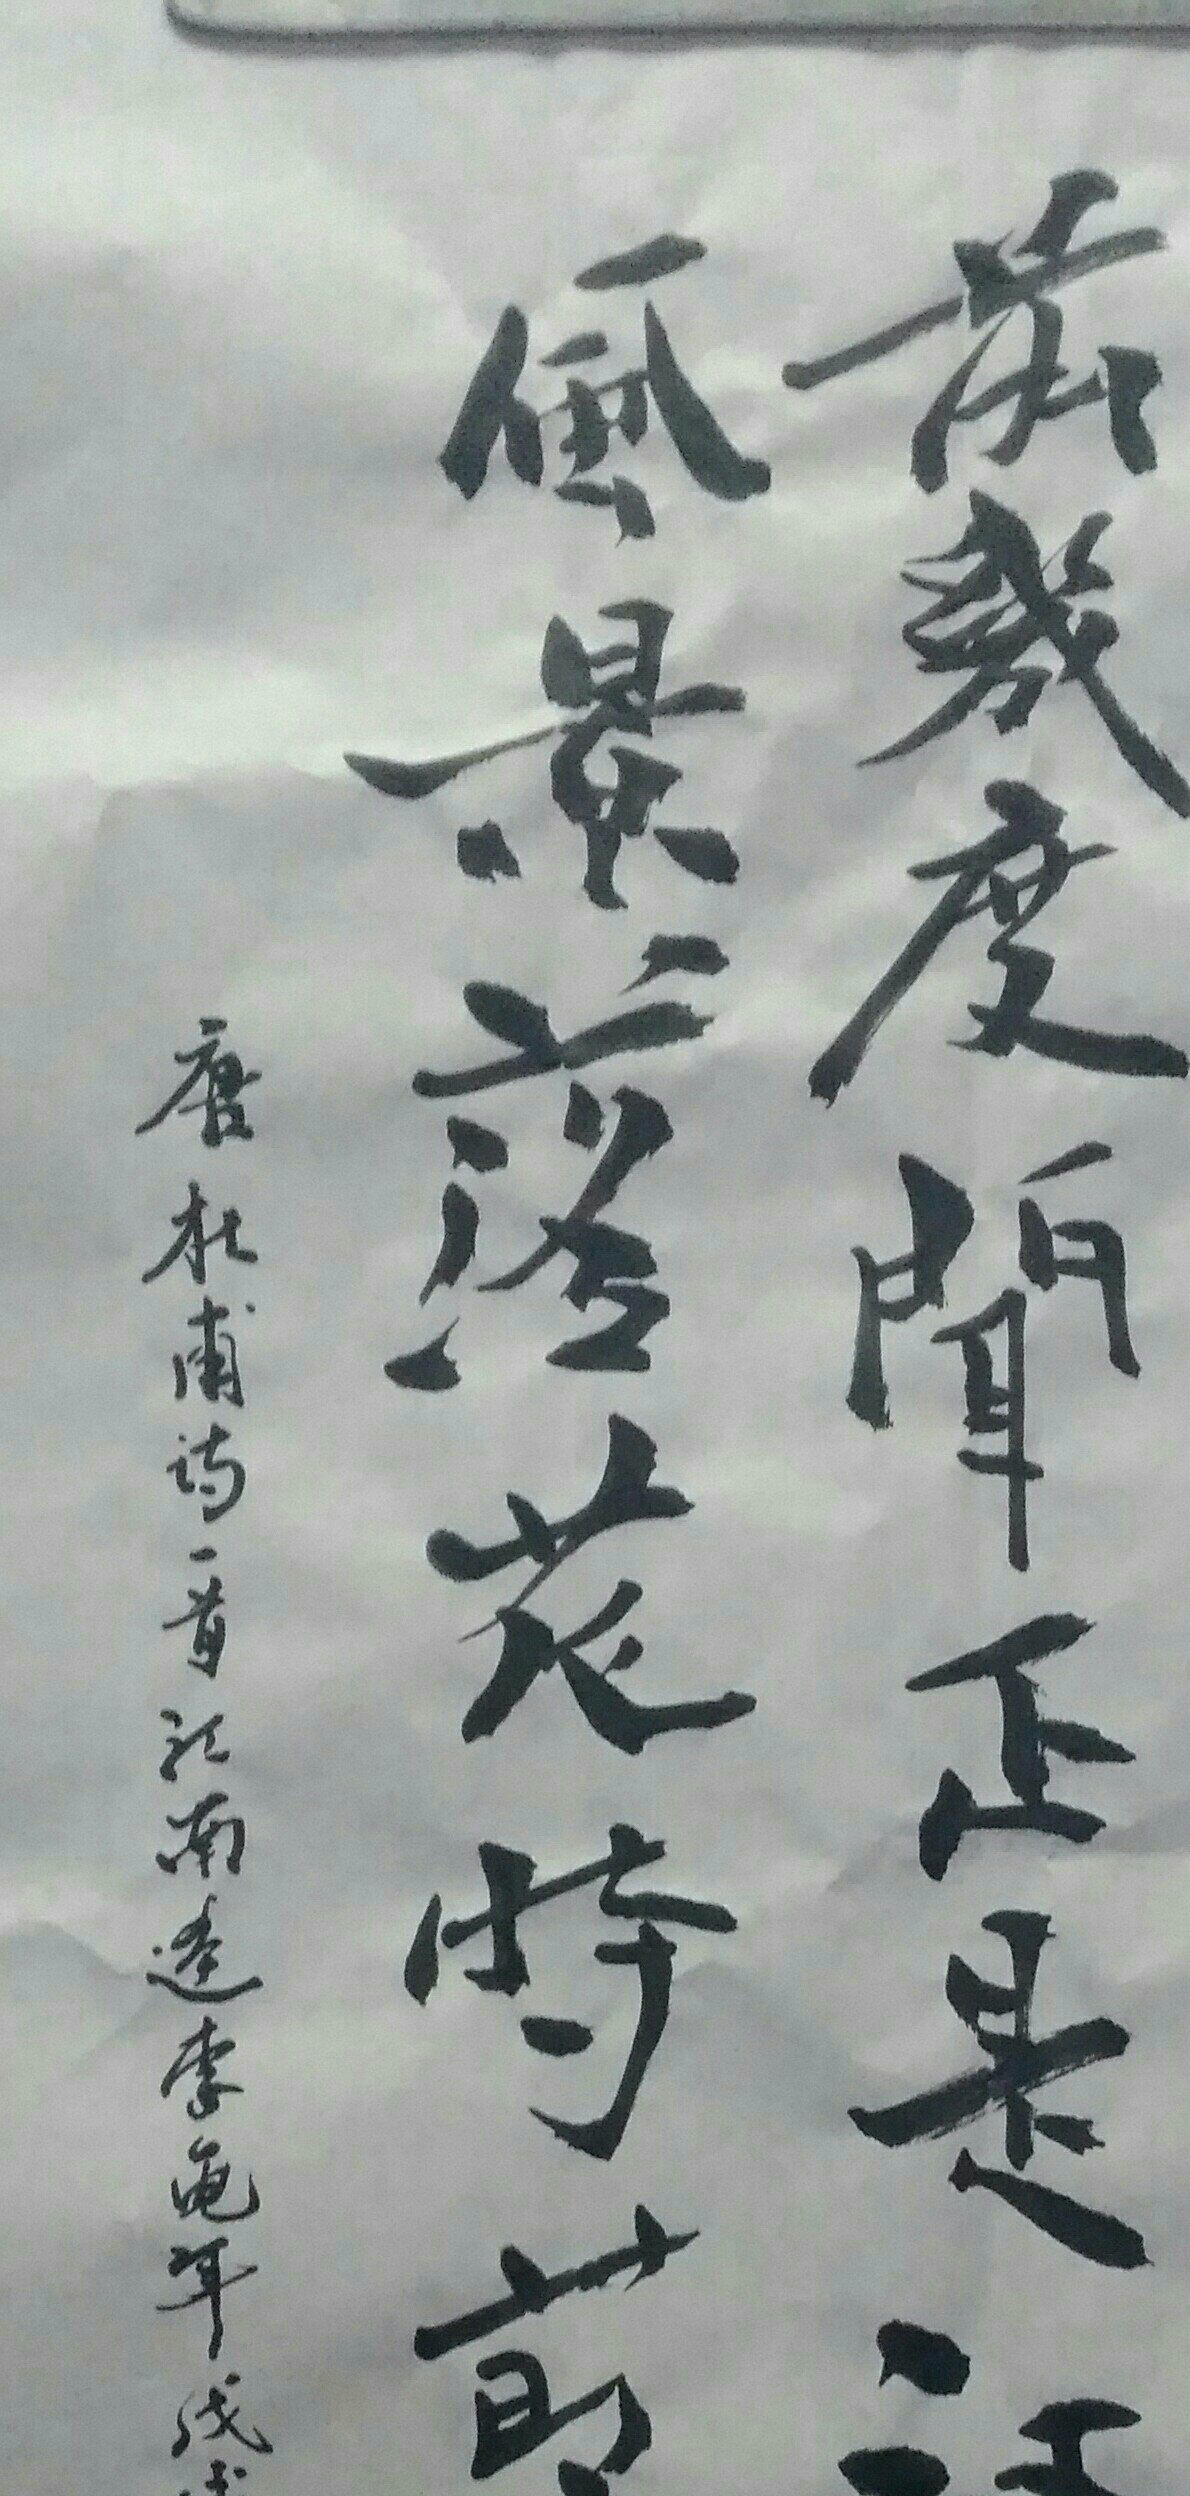 前幾度聞正是江
風景落花時節
唐杜甫詩一首江南逢李龜年戊戌